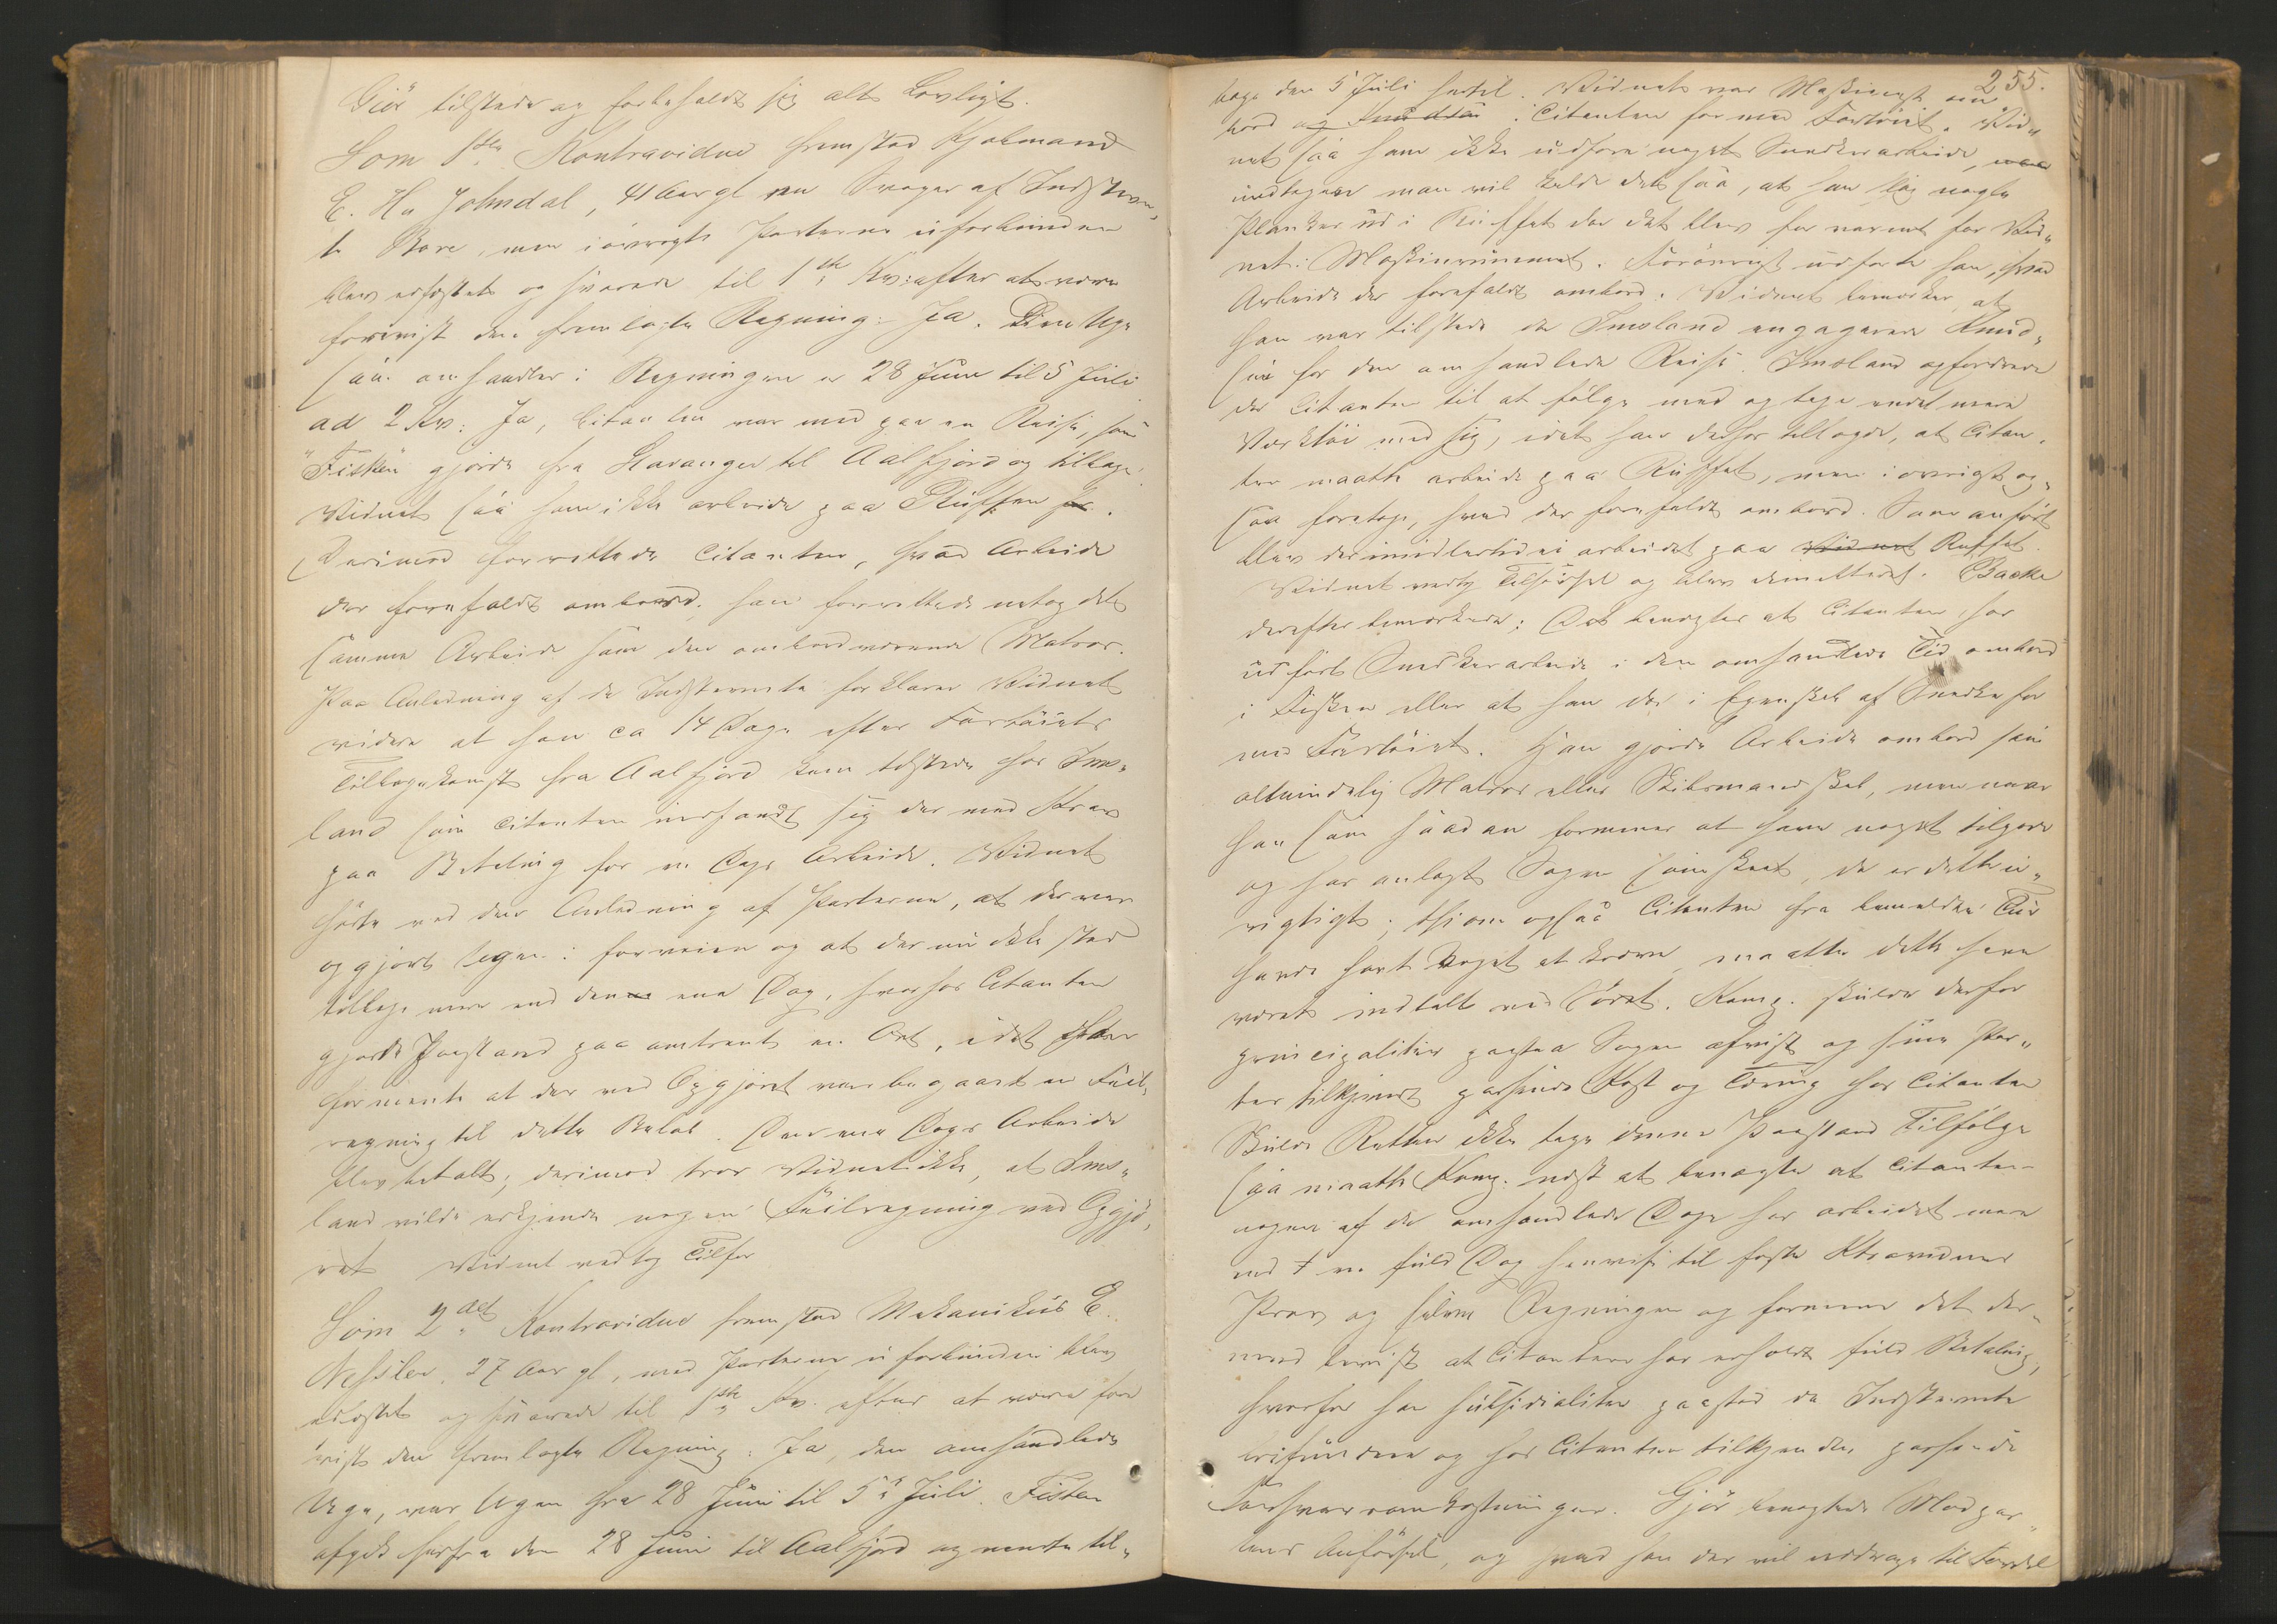 Gjör tilstede og forbeholdt sig alt Lovligt.
Som 1ste Kontravidne fremstod Kjøbmand
E. H. Johndal, 41 Aar gl. en Svoger af Indstevn„
te Bore, men iøvrigt Parterne uforbunden
blev edfæstet og svarede til 1ste Kv: efter at være
forevist den fremlagte Regning: Ja. Den Uge
som omhandles i Regningen er 28 Juni til 5 Juli
ad 2 Kv: Ja, Citanten var med paa en Reise, som
"Fisken" gjorde fra Stavanger til Aalfjord og tilbage.
Vidnet saa ham ikke arbeide paa Ruffen.
Derimod forrettede Citanten, hvad Arbeide
der forefaldt ombord, han forrettede netop det
samme Arbeide som den ombordværende Matros.
Paa Anledning af de Indstevnte forklarer Vidnet
videre at han ca 14 Dage efter Fartøiets
Tilbagekomst fra Aalfjord kom tilstede hos Ims„
land som Citanten indfandt sig der med Krav
paa Betaling for en Dags Arbeide. Vidnet
hørte ved den Anledning af Parterne, at der var
opgjort Ugen i forveien og at der nu ikke stod
tilbage mere end den ene Dag, hvorfor Citanten
gjorde Paastand paa omtrent en Ort, idet
formente at der ved Opgjøret var begaaet en Feil„
regning til dette Beløb. Den ene Dags Arbeide
blev betalt; derimod tror Vidnet ikke, at Ims„
land vilde erkjende nogen Feilregning ved Opgjø„
ret Vidnet vedtog Tilfør
Som 2det Kontravidne fremstod Mekanikus E.
Nessler, 27 Aar gl, med Parterne uforbunden blev
edfæstet og svarede til 1ste Kv. efter at være fore
vist den fremlagte Regning: Ja, den omhandlede
Uge, var Ugen fra 28 Juni til 5te Juli. Fisken
afgik herfra den 28 Juni til Aalfjord og vendte til„
255.
bage den 5 Juli hertil. Vidnet var Maskinist om
bord og Knudsen. Citanten for med Fartøiet. Vid„
net saa ham ikke udføre noget Snedkerarbeide,
medmindre man vil kalde det saa, at han slog nogle
Planker ud i Ruffet da det blev for varmt for Vid„
net i Maskinrummet. Forøvrigt udførte han, hvad
Arbeide der forefaldt ombord. Vidnet bemærker, at
han var tilstede da Imsland engagerede Knud„
sen for den omhandlede Reise. Imsland opfordrede
da Citanten til at følge med og tage endel mere
Værktøi med sig, idet han derhos tillagde, at Citan„
ten maatte arbeide paa Ruffet, men iøvrigt og„
saa foretage, hvad der forefaldt ombord. Som anført
blev der imidlertid ei arbeidet paa Vidnet Ruffet.
Vidnet vedtog Tilførsel og blev dimitteret. Backe
derefter bemærkede: Det benægtes at Citanten har
udført Snedkerarbeide i den omhandlede Tid ombord
i Fisken eller at han der i Egenskab af Snedker for
med Fartøiet. Han gjorde Arbeide ombord som
almindelig Matros eller Skibsmandskab, men naar
han som saadan formener at have noget tilgode
og har anlagt Sagen som skeet, da er dette u„
rigtigt; thi om ogsaa Citanten fra bemeldte Tur
havde havt Noget at kræve, maatte dette have
været indtalt ved Søret. Komp. skulde derfor
principaliter paastaa Sagen afvist og sine Par„
ter tilkjendt passende Kost og Tæring hos Citanten
Skulde Retten ikke tage denne Paastand Tilfølge
saa maatte Komp. næst at benægte at Citanten
nogen af de omhandlede Dage har arbeidet mere
end en fuld Dag henvise til første Ktravidnes
Prov og selve Regningen og formene det der„
med bevist at Citanten har erholdt fuld Betaling,
hvorfor han subsidialiter paastod de Indstevnte
frifundne og hos Citanten tilkjendte passende
Sagsomkostninger. Gjör benægtede Modpar„
tens Anførsel, og hvad han der vil uddrage til Fordel